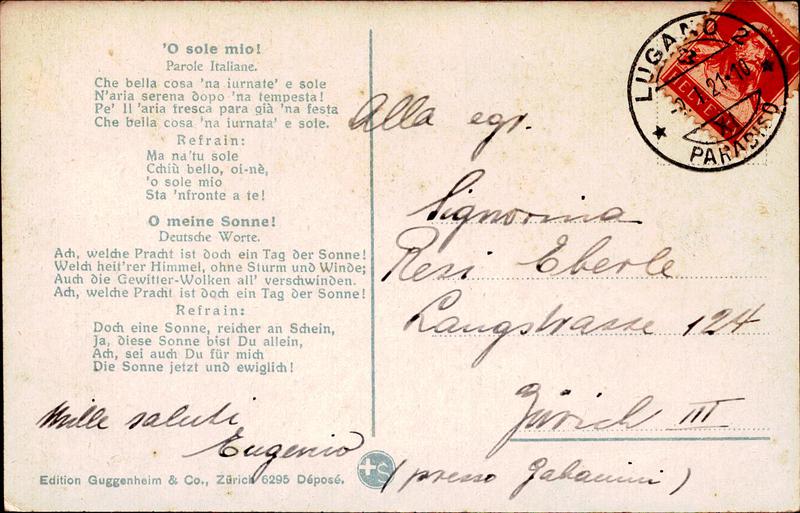 'O sole mio!
Parole Italiane.
Che bella cosa 'na iurnate' e sole
N'aria serena dopo 'na tempesta!
Pe' ll 'aria fresca para già 'na festa
Che bella cosa 'na iurnata' e sole.
Refrain:
Ma na'tu sole
Cchiù bello, oi-nè,
'o sole mio
Sta 'nfronte a te!
O meine Sonne!
Deutsche Worte.
Ach, welche Pracht ist doch ein Tag der Sonne!
Welch heit'rer Himmel, ohne Sturm und Winde;
Auch die Gewitter-Wolken all' verschwinden.
Ach, welche Pracht ist doch ein Tag der Sonne!
Refrain:
Doch eine Sonne, reicher an Schein,
Ja, diese Sonne bist Du allein,
Ach, sei auch Du für mich
Die Sonne jetzt und ewiglich!
Mille saluti
Eugenio
Edition Guggenheim & Co., Zürich 6295 Déposé.
S
LUGANO 2
21-10
XI
PARADISO
10
Alla egr.
Signorina
Resi Eberle
Langstrasse 124
Zürich III
(presso Gabanini)